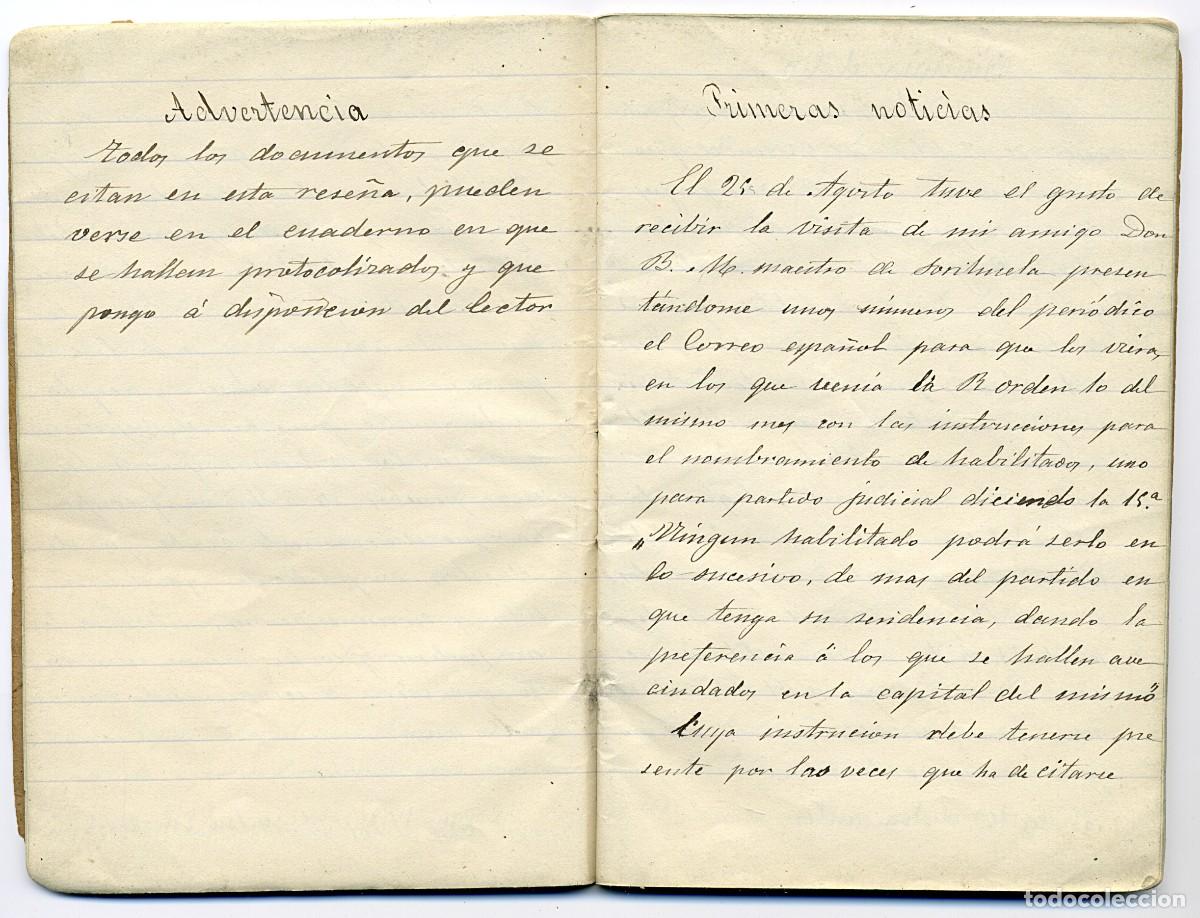 Advertencia
Todos los documentos que se
citan en esta reseña, pueden
verse en el cuaderno en que
se hallan protocolizados y que
pongo á disposicion del lector
Primeras noticias
El 25 de Agosto tuve el gusto de
recibir la visita de mi amigo Don
B. M. maestro de Sorihuela presen
tándome unos números del periódico
el Correo español para que los viera,
en los que venía la R orden 10 del
mismo mes con las instrucciones para
el nombramiento de habilitados, uno
para partido judicial diciendo la 15.ª
"Ningun habilitado podrá serlo en
lo sucesivo, de mas del partido en
que tenga su residencia, dando la
preferencia á los que se hallen ave
cindados en la capital del mismo"
Cuya instrucion debe tenerse pre
sente por las veces que ha de citarse
todocoleccion